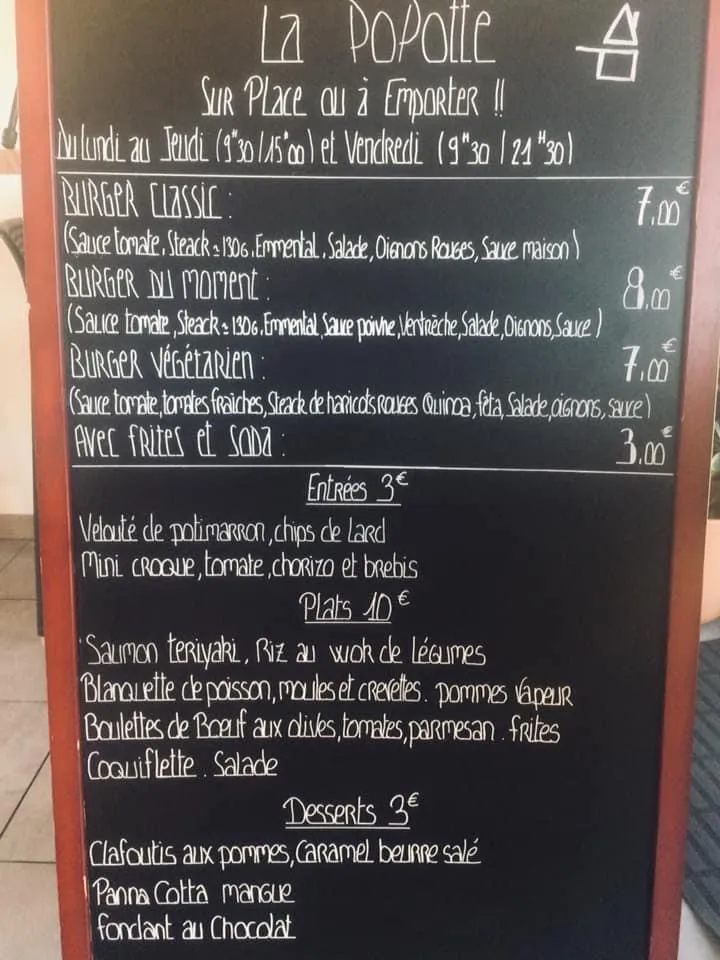 La Popotte
Sur Place ou à Emporter !!
Du lundi au Jeudi (9"30/15"00) et Vendredi (9"30/21"30)
BURGER Classic : 7.00€
(Sauce tomate, Steack = 130G, Emmental, Salade, Oignons Rouges, Sauce maison)
BURGER DU moment : 8.00€
(Sauce tomate, Steack = 130G, Emmental, Sauce poivre, Ventrèche, Salade, Oignons, Sauce)
BURGER Végétarien : 7.00€
(Sauce tomate, tomates fraiches, Steack de haricots Rouges Quinoa, fêta, Salade, oignons, sauce)
Avec frites et Soda : 3.00€
Entrées 3€
Velouté de potimarron, chips de Lard
Mini croque, tomate, chorizo et brebis
Plats 10€
Saumon teriyaki, Riz au wok de légumes
Blanquette de poisson, moules et crevettes. pommes Vapeur
Boulettes de Bœuf aux olives, tomates, parmesan. frites
Coquiflette. Salade
Desserts 3€
Clafoutis aux pommes, Caramel beurre salé
Panna Cotta mangue
fondant au Chocolat